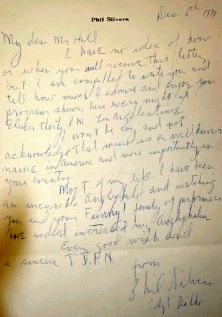 Phil Silvers
Dec 5th 1979
My dear Mr Hill
I have no idea of how
or when you will receive this letter
but I am compelled to write you and
tell how much I admire and enjoy your
program shown here every night at
Eleven thirty PM in Los Angeles
I won't be coy and not
acknowledge that mine is a well known
name in America and more importantly in
your country.
Most of my life I have been
an incurable Anglophile and watching
you and your Funny, family of performers
have indeed increased my Anglophilia
Every good wish and
a sincere
from
Phil Silvers
"Sgt Bilko"